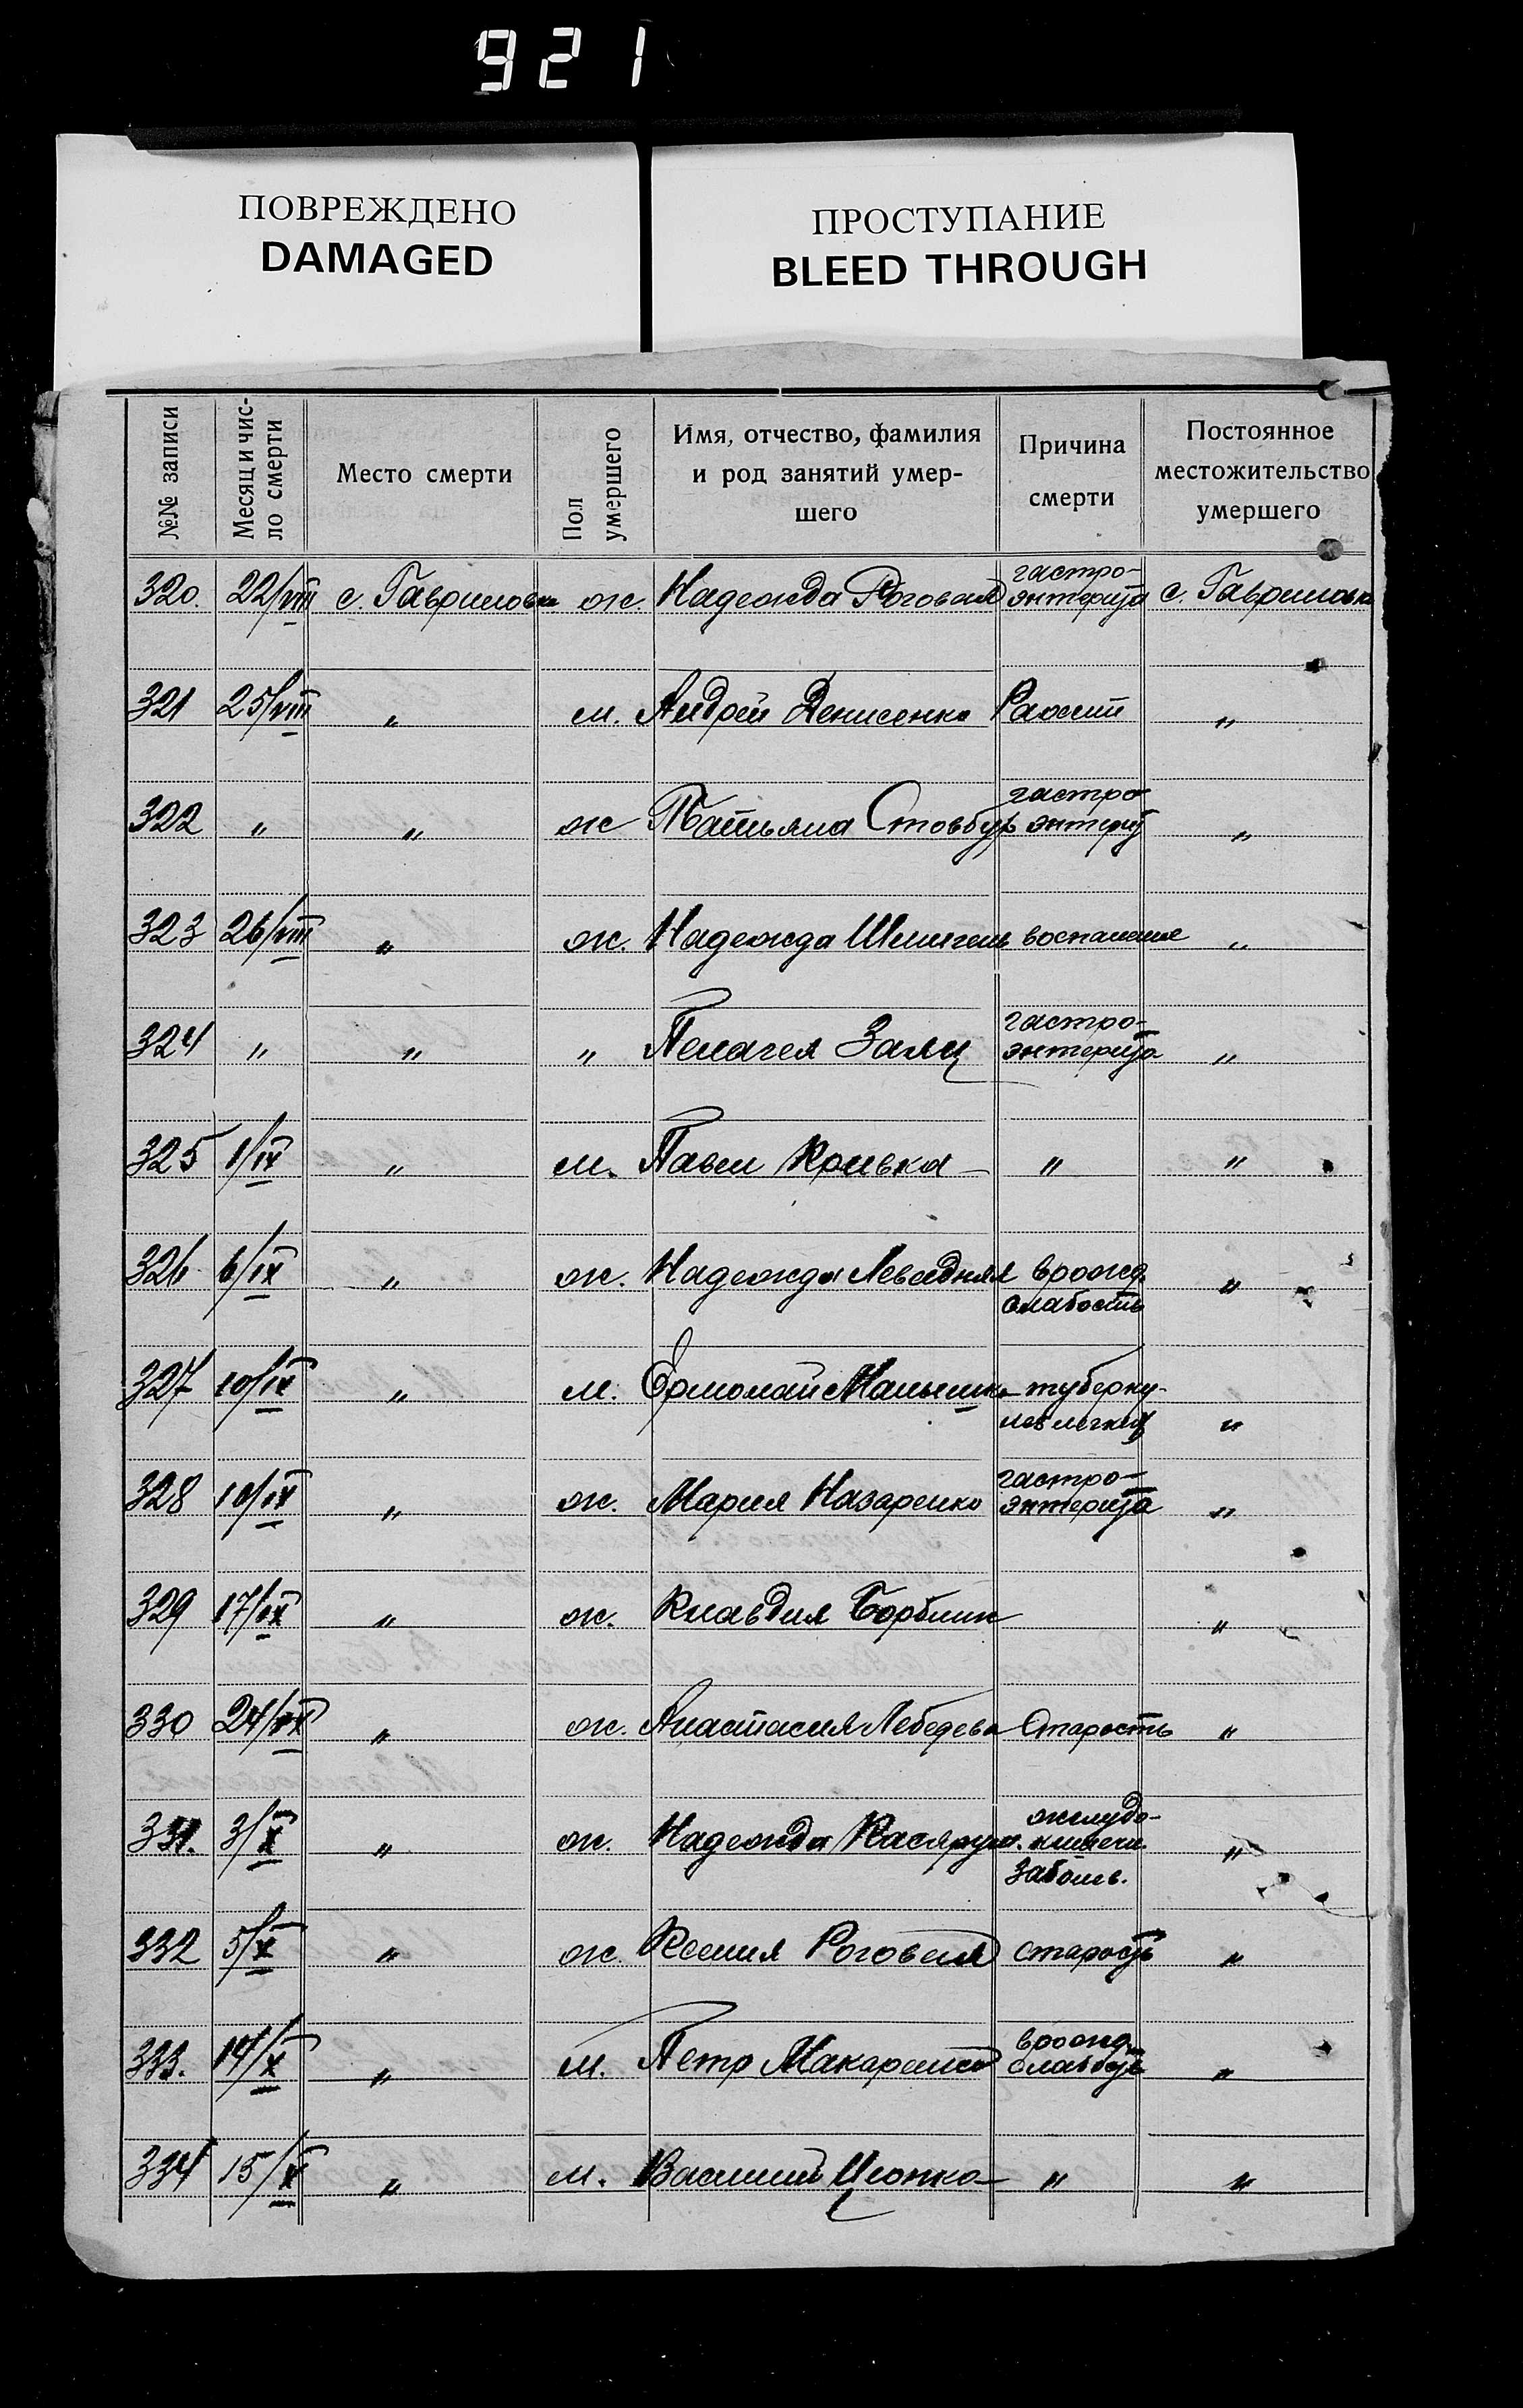 921
ПОВРЕЖДЕНО
DAMAGED
ПРОСТУПАНИЕ
BLEED THROUGH
№№ записи
Месяц и чис-
ло смерти
Место смерти
Пол
умершего
Имя, отчество, фамилия
и род занятий умер-
шего
Причина
смерти
Постоянное
местожительство
умершего
гастро-
320. 22/VIII с. Гавриловка ж. Надежда Роговая энтерита с. Гавриловка
321 25/VIII " м. Андрей Денисенко Рахит "
гастро
322 " " ж Татьяна Стовбур энтерит "
323 26/VIII " ж. Надежда воспаление "
гастро-
324 " " " Пелагея Заяц энтерита "
325 1/IX " м. Павел Кривка " "
326 6/IX " ж. Надежда Левадняя врожд. "
слабость
327 10/IX " м. Ермолай туберку-
лез легких "
гастро-
328 10/IX " ж. Мария Назаренко энтерита "
329 17/IX " ж. Клавдия "
330 24/IX " ж. Анастасия Лебедева Старость "
желудо-
331. 3/X " ж. Надежда кишечн. "
заболев.
332 5/X " ж. Ксения Роговая старость "
врожд.
333. 14/X " м. Петр Макаренко слабость "
334 15/X " м. Василий Цюпка " "